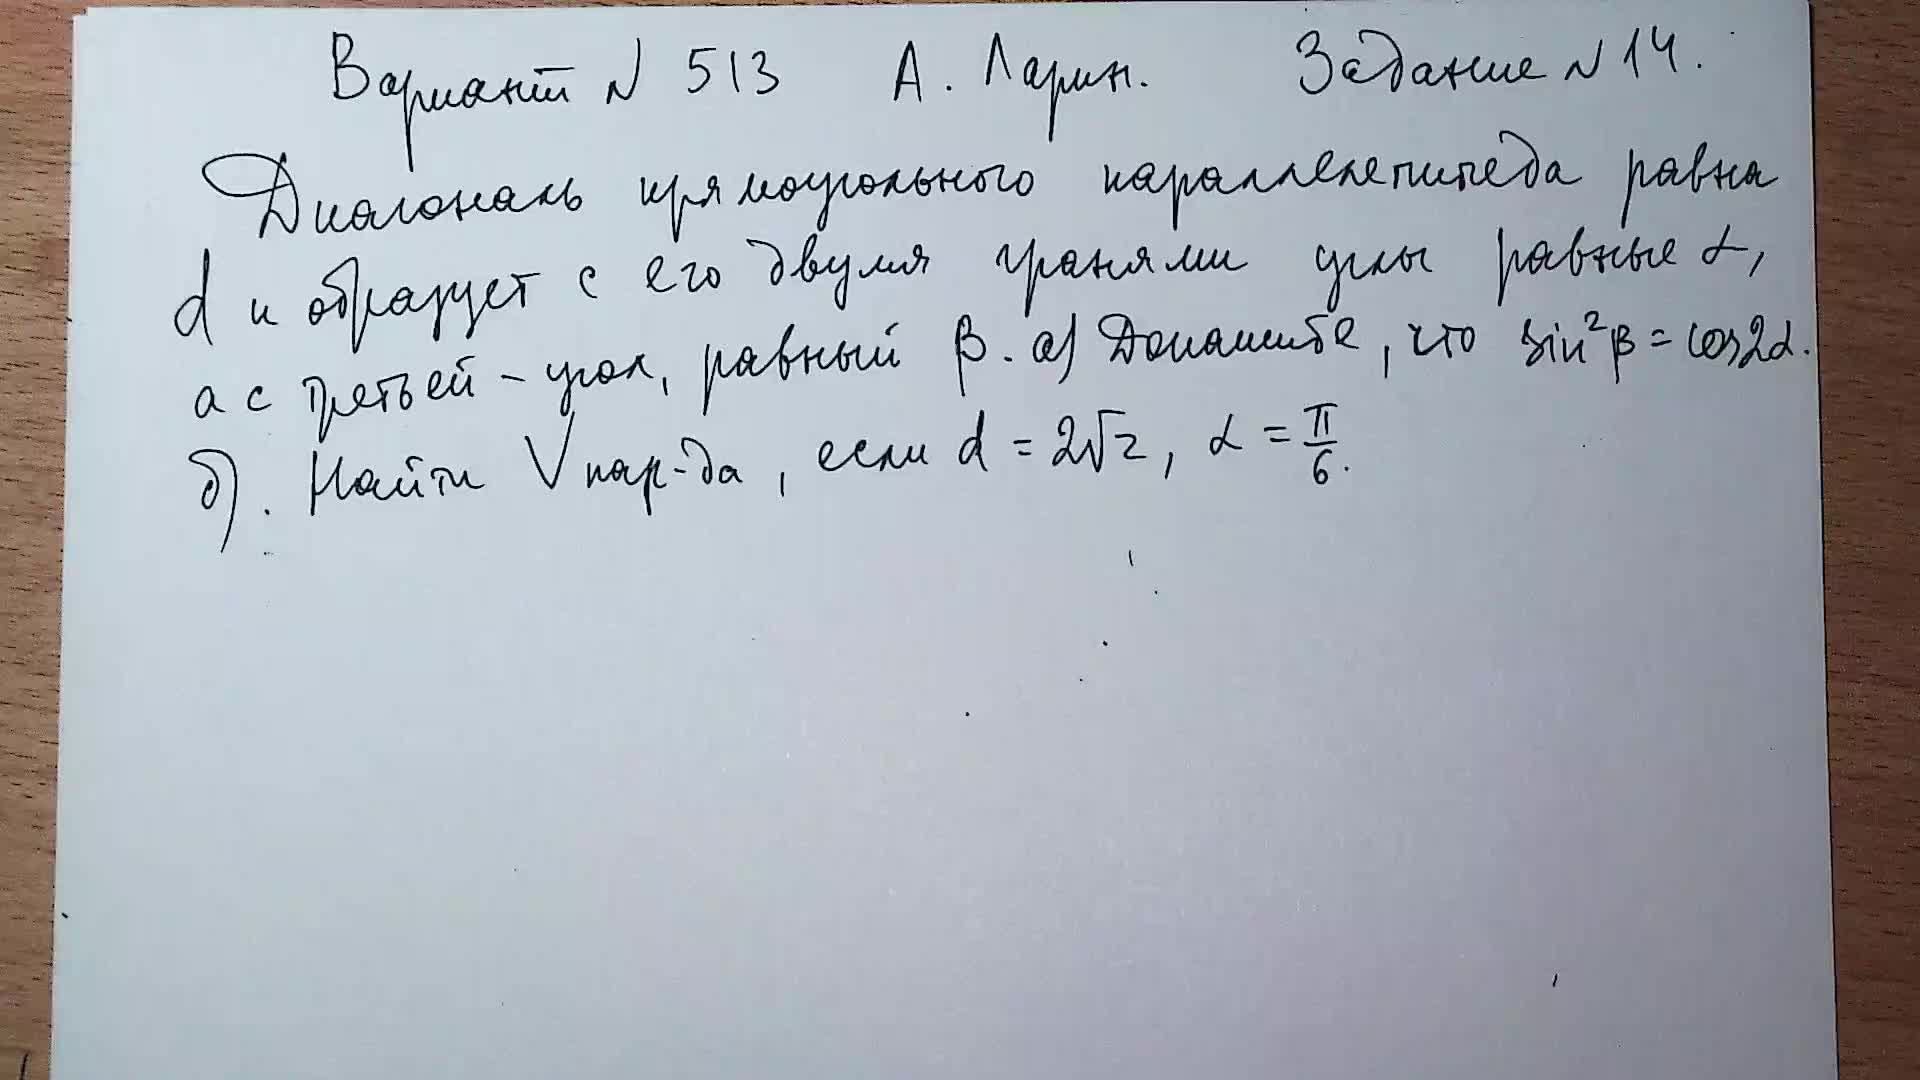 Вариант N 513 А. Ларин. Задание N 14.
Диагональ прямоугольного параллелепипеда равна
d и образует с его двумя гранями углы равные α,
а с третьей - угол, равный β. а) Докажите, что sin²β = cos2α.
б). Найти Vпар-да, если d = 2√2, α = π/6.